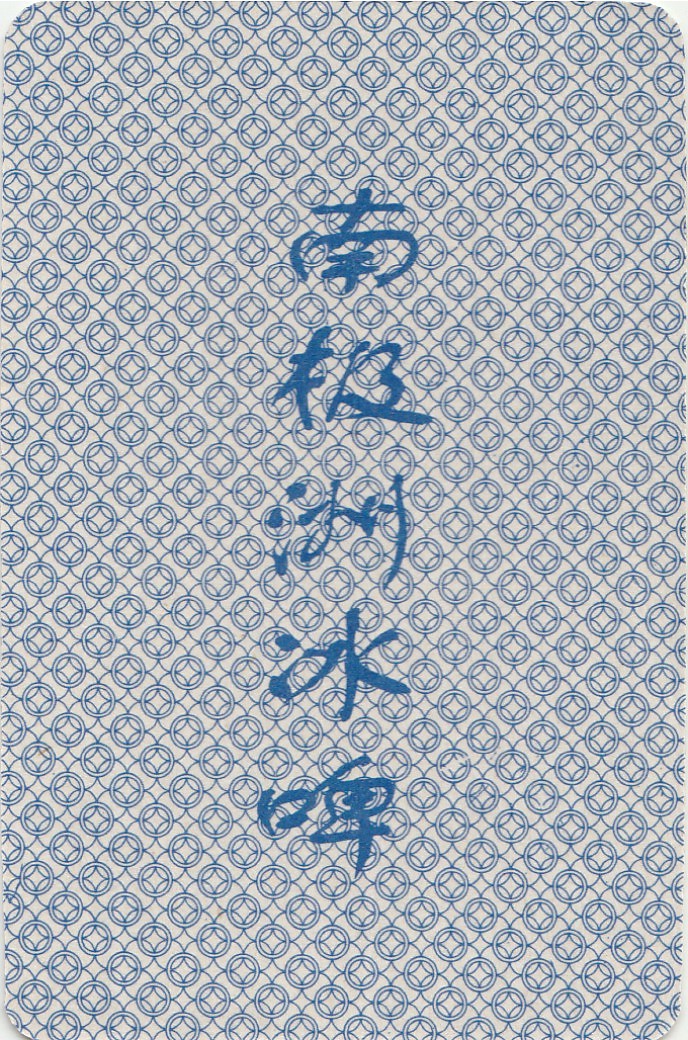 南极洲冰啤